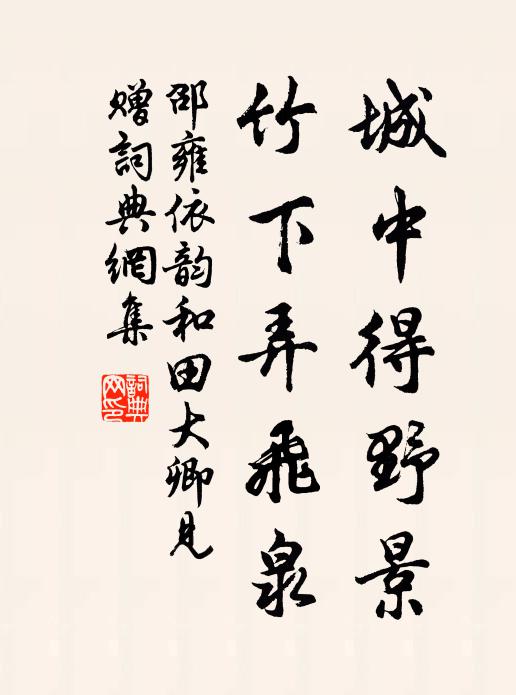 城中得野景
竹下弄飛泉
邵雍依韵和田大卿見
贈詞典網集
詞典
网印